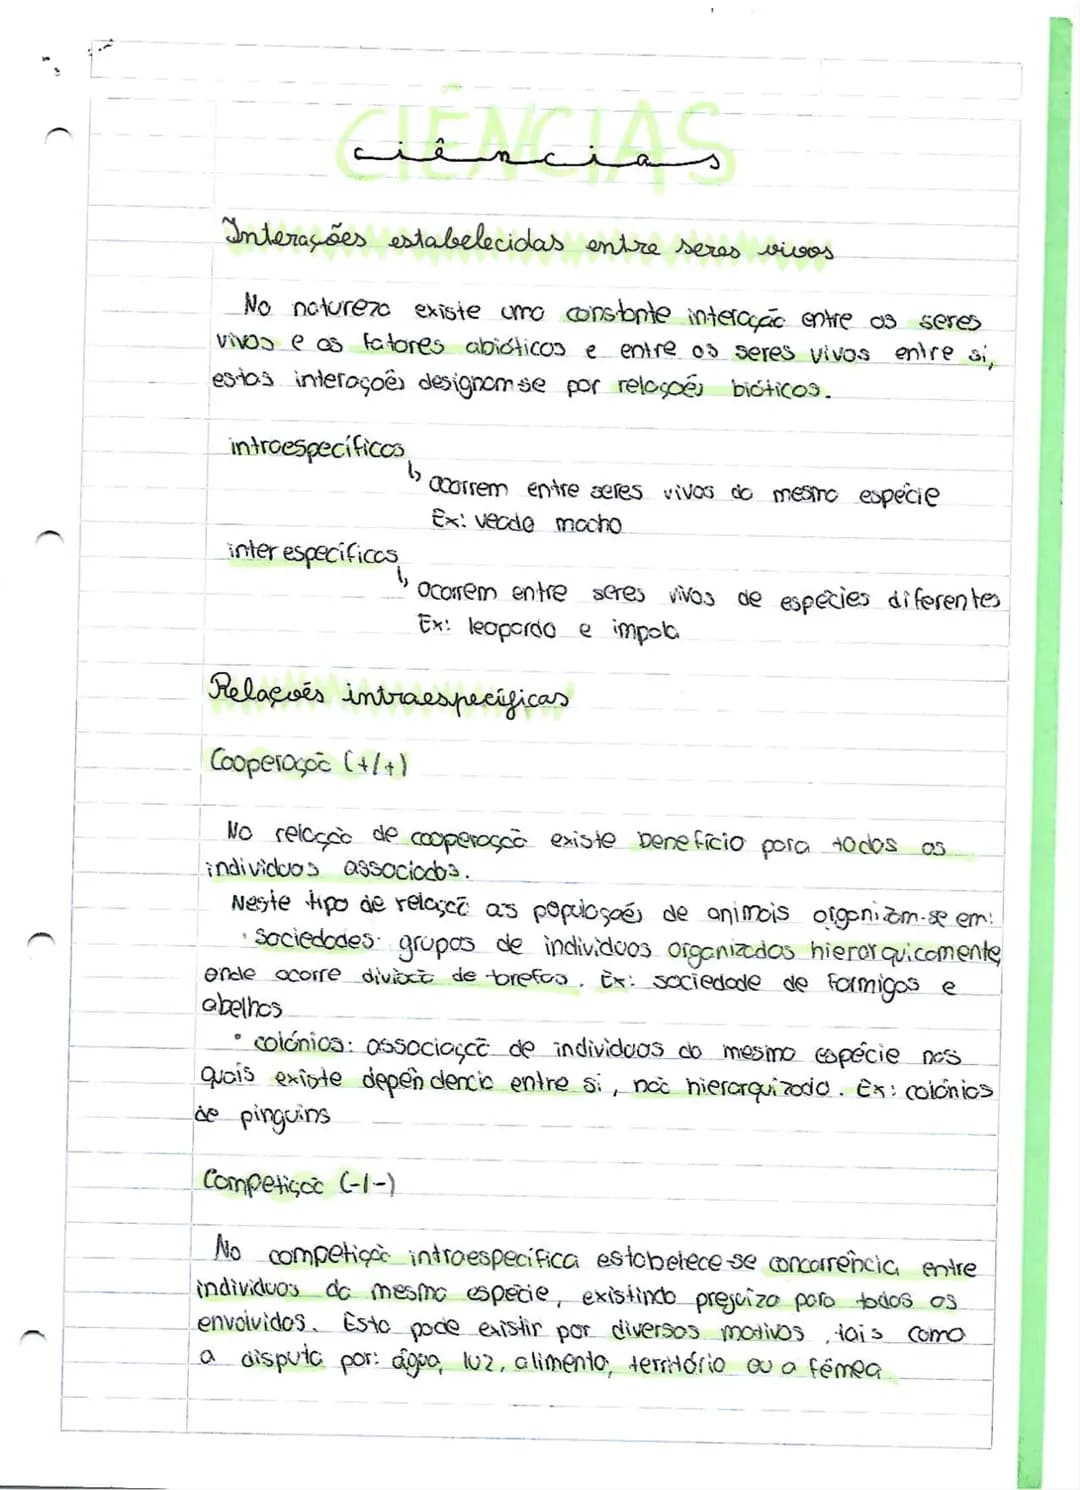 CIÊNCIAS
ciências
Interações estabelecidas entre seres vivos
Na natureza existe uma constante interação entre os seres
vivos e os fatores abióticos e entre os seres vivos entre si,
estas interações designam-se por relações bióticas.
intraespecíficas
↳ ocorrem entre seres vivos da mesma espécie
Ex: veado macho
interespecíficas
↳ ocorrem entre seres vivos de espécies diferentes
Ex: leopardo e impala
Relações intraespecíficas
Cooperação (+/+)
Na relação de cooperação existe benefício para todos os
individuos associados.
Neste tipo de relação as populações de animais organizam-se em:
• Sociedades: grupos de individuos organizados hierarquicamente
onde ocorre divisão de tarefas. Ex: sociedade de formigas e
abelhas
• colónias: associação de individuos da mesma espécie nas
quais existe dependencia entre si, não hierarquizada. Ex: colónias
de pinguins
Competição (-/-)
Na competição intraespecífica estabelece-se concorrência entre
individuos da mesma espécie, existindo prejuizo para todos os
envolvidos. Esta pode existir por diversos motivos, tais como
a disputa por: água, luz, alimento, território ou a fêmea